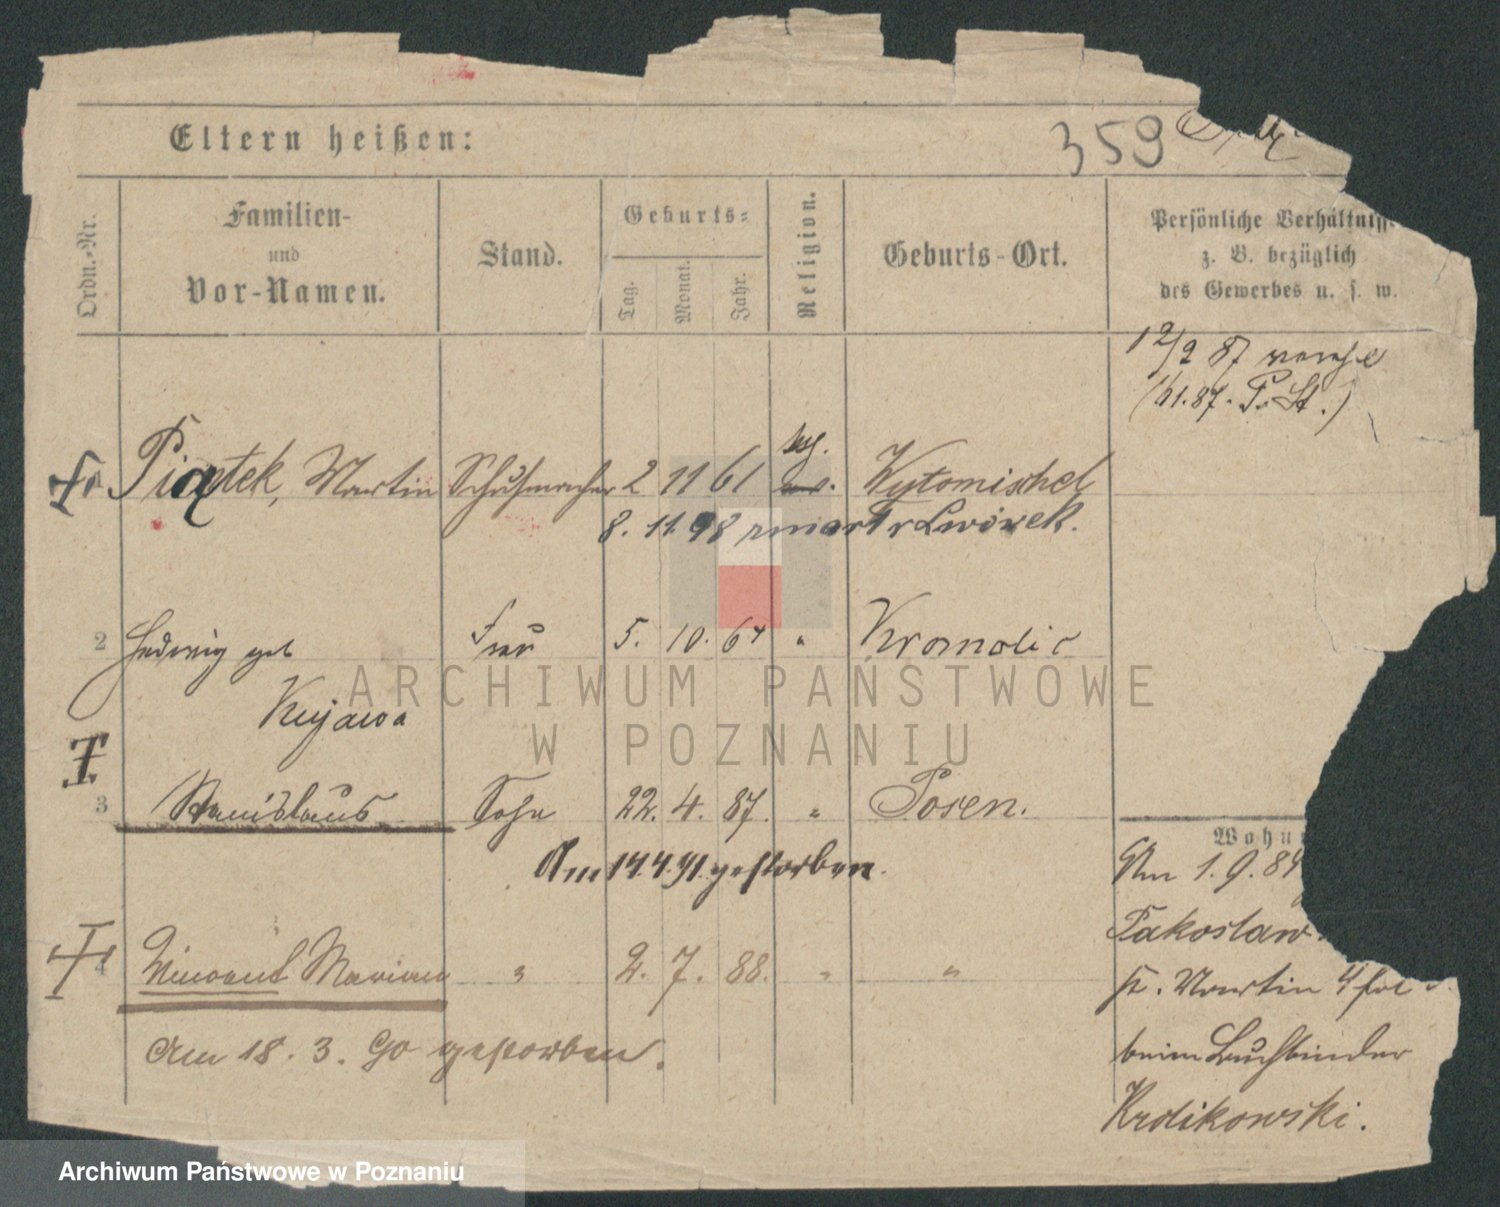 Eltern heißen:
359
Ordn.-Nr.
Familien-
und
Vor-Namen.
Stand.
Geburts-
Tag.
Monat.
Jahr.
Religion.
Geburts-Ort.
Persönliche Verhältnisse
z. B. bezüglich
des Gewerbes u. s. w.
12/2 87
Piątek, Martin Schuhmacher 2 11 61 Wytomischel
8. 11. 98 zmarł w Lwówek.
2 Hedwig geb Frau 5. 10. 64 " Kromolic
Kujawa
3 Stanislaus Sohn 22. 4. 87. " Posen.
Am 14.4.91 gestorben.
4 Vincent Marian " 2. 7. 88. " "
Am 18. 3. 90 gestorben.
Wohnu
Am 1. 9. 89
Pakoslaw
St. Martin 4
beim Buchbinder
Krolikowski.
ARCHIWUM PAŃSTWOWE
W POZNANIU
Archiwum Państwowe w Poznaniu